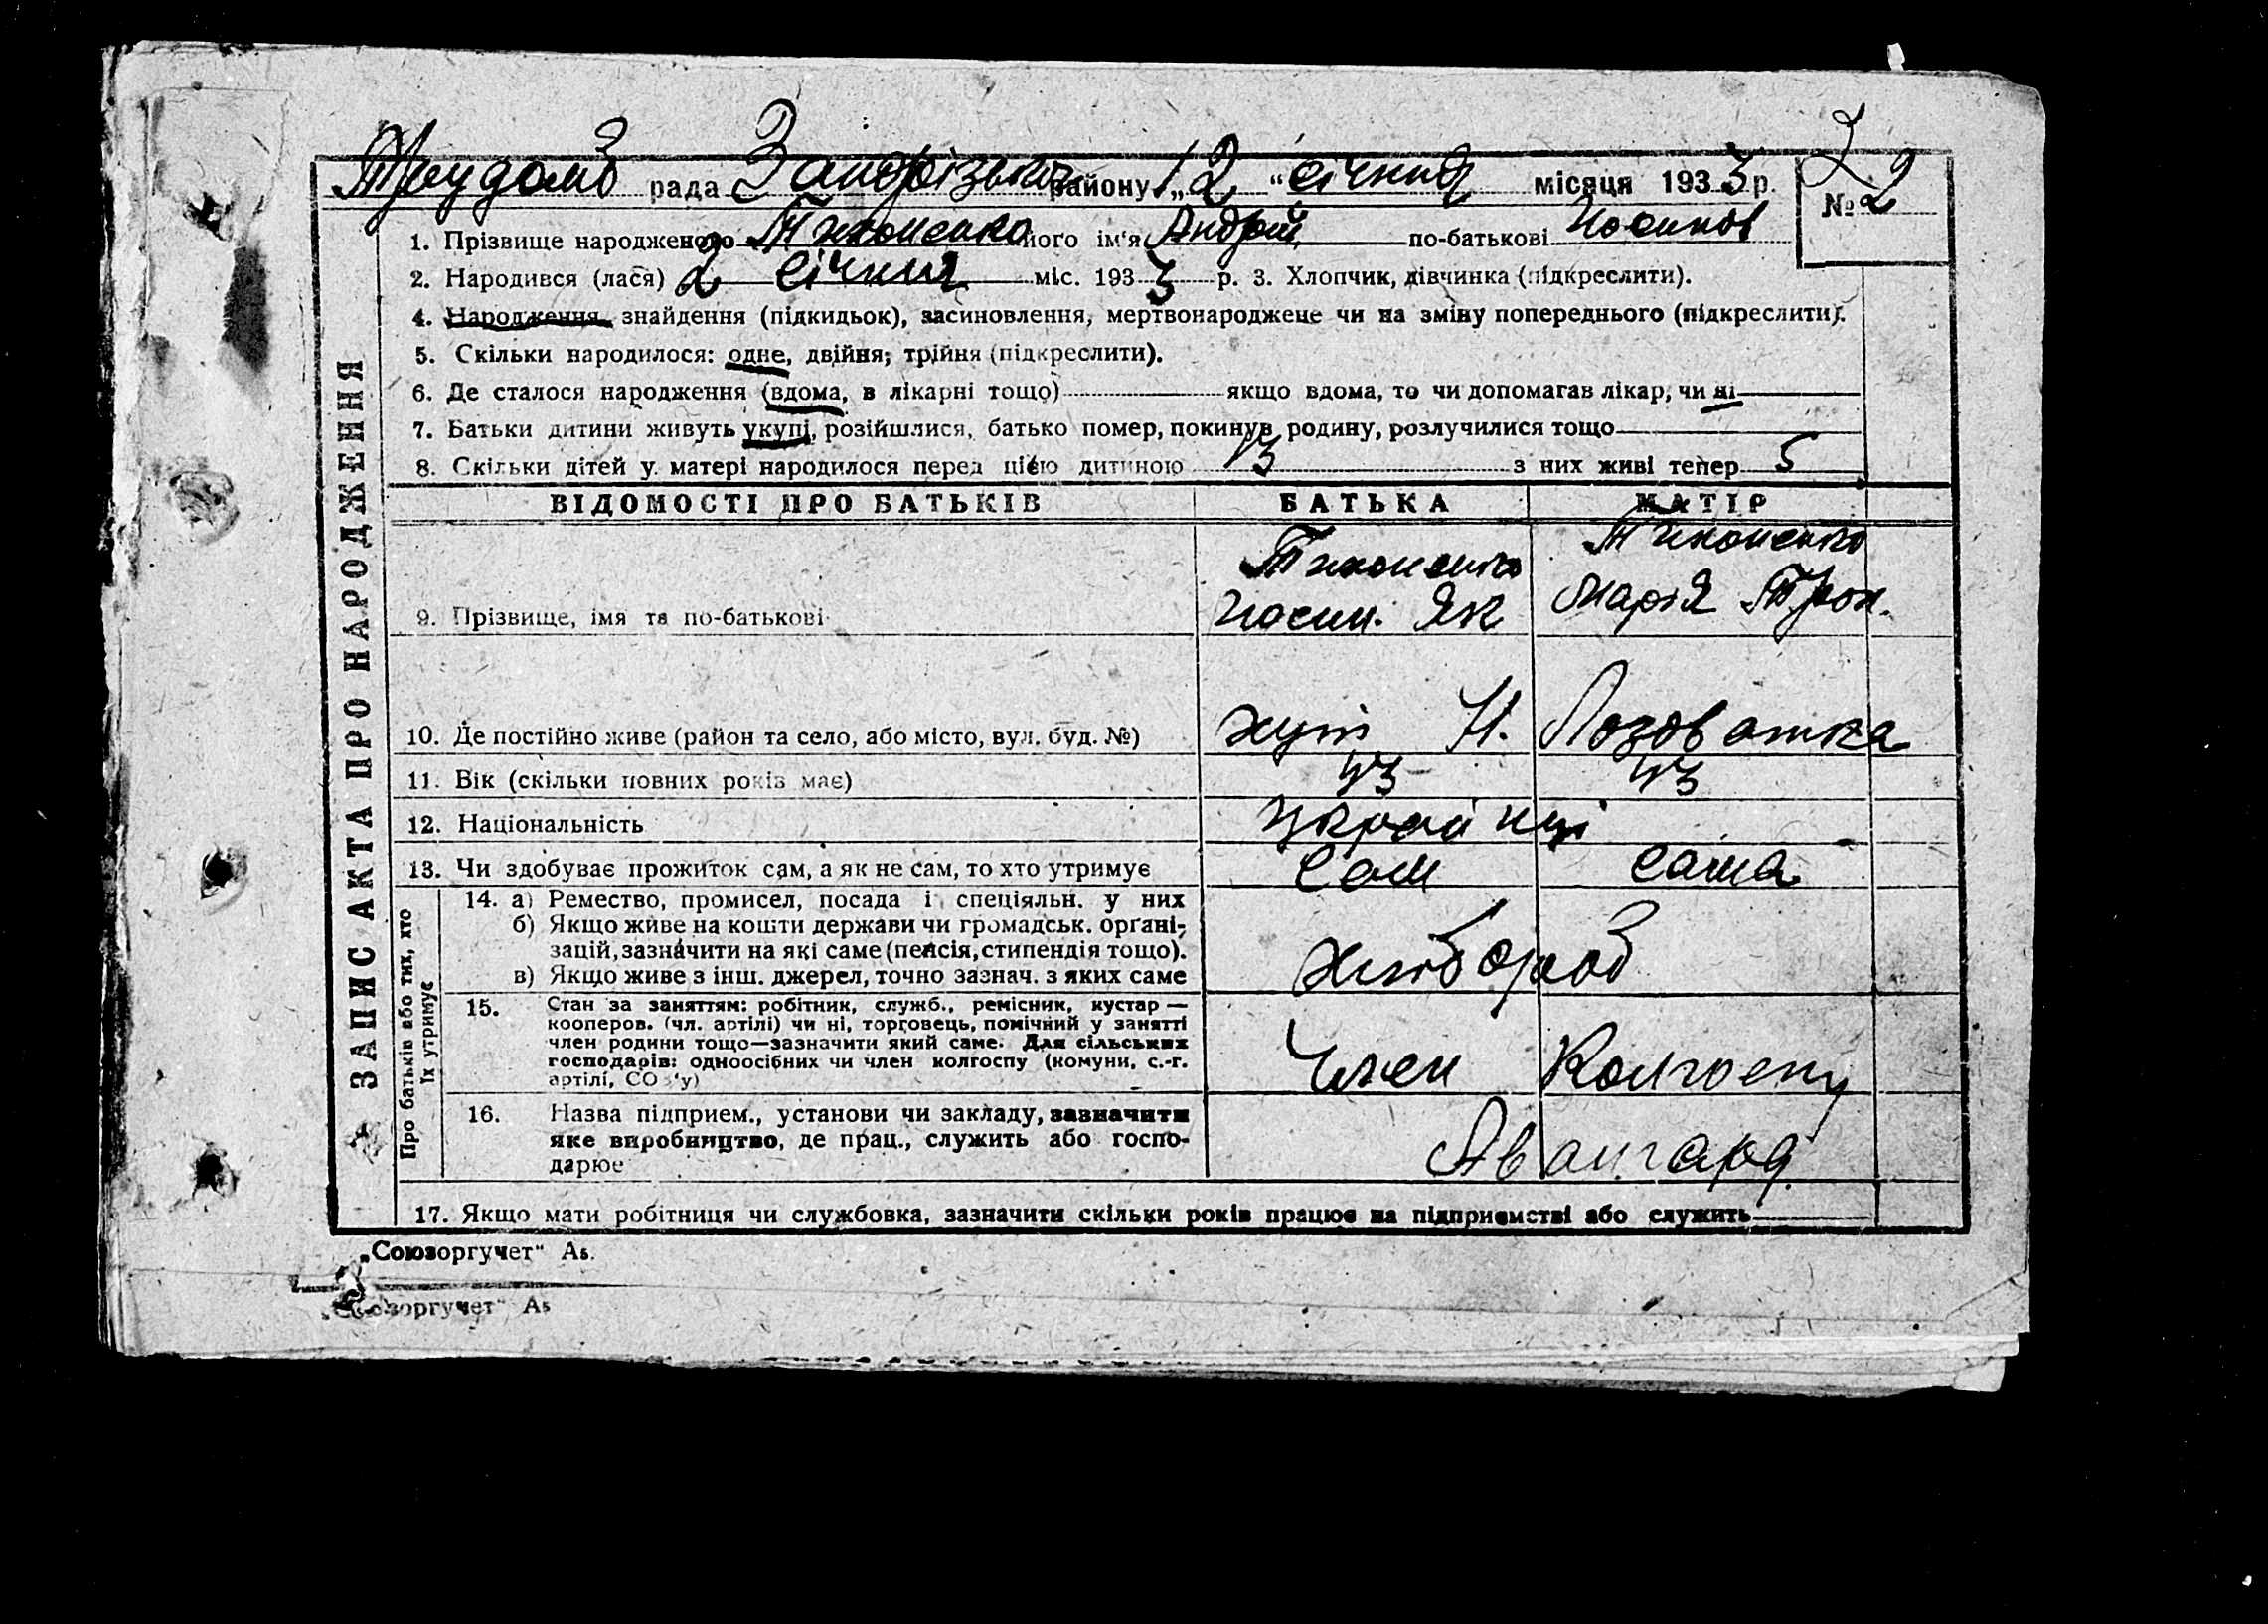 Трудолюб рада Запорізького району „12“ січня місяця 1933 р. № 2
1. Прізвище народженого Тихоненко його ім'я Андрій по-батькові Йосипов
2. Народився (лася) 2 січня міс. 1933 р. 3. Хлопчик, дівчинка (підкреслити).
4. Народження, знайдення (підкидьок), засиновлення, мертвонароджене чи на зміну попереднього (підкреслити).
5. Скільки народилося: одне, двійня; трійня (підкреслити).
6. Де сталося народження (вдома, в лікарні тощо) якщо вдома, то чи допомагав лікар, чи ні
7. Батьки дитини живуть укупі, розійшлися, батько помер, покинув родину, розлучилися тощо
8. Скільки дітей у матері народилося перед цією дитиною 13 з них живі тепер 5
ВІДОМОСТІ ПРО БАТЬКІВ БАТЬКА МАТІР
Тихоненко Тихоненко
9. Прізвище, імя та по-батькові Йосип. Як Марія Трох.
10. Де постійно живе (район та село, або місто, вул. буд. №) хут Н. Лозоватка
11. Вік (скільки повних років має) 43 43
12. Національність Українці
13. Чи здобуває прожиток сам, а як не сам, то хто утримує Сам сама
14. а) Ремество, промисел, посада і спеціяльн. у них
б) Якщо живе на кошти держави чи громадськ. орґані-
зацій, зазначити на які саме (пенсія, стипендія тощо).
в) Якщо живе з інш. джерел, точно зазнач. з яких саме
хлібороб
15. Стан за заняттям: робітник, служб., ремісник, кустар —
кооперов. (чл. артілі) чи ні, торговець, помічний у занятті
член родини тощо—зазначити який саме. Для сільських
господарів: одноосібних чи член колгоспу (комуни, с.-г.
артілі, СОЗ'у)
Член Колгоспу
16. Назва підприєм., установи чи закладу, зазначити
яке виробництво, де прац., служить або госпо-
дарює
Авангард
17. Якщо мати робітниця чи службовка, зазначити скільки років працює на підприємстві або служить
ЗАПИС АКТА ПРО НАРОДЖЕННЯ
Про батьків або тих, хто
їх утримує
„Союзоргучет“ А5.
„Союзоргучет“ А5